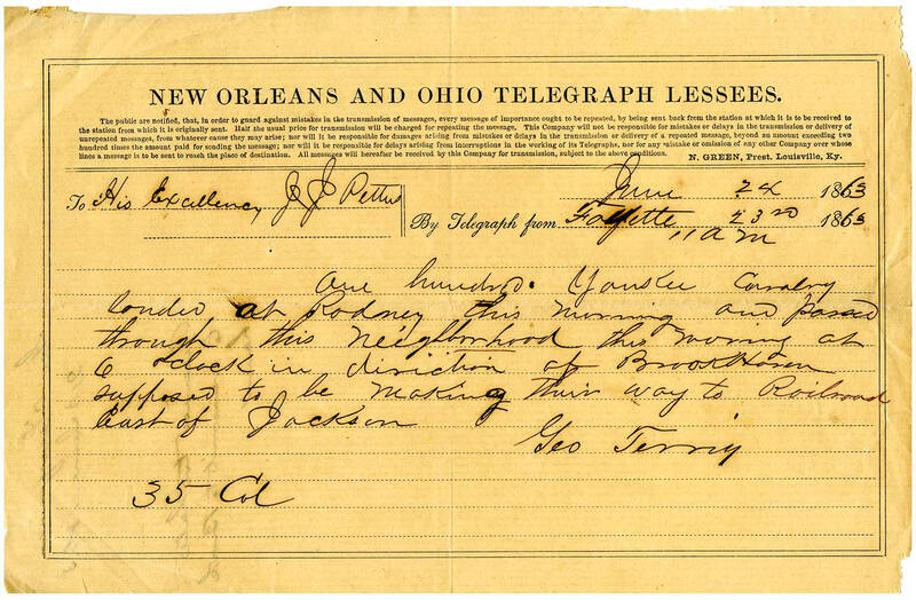 NEW ORLEANS AND OHIO TELEGRAPH LESSEES.
The public are notified, that, in order to guard against mistakes in the transmission of messages, every message of importance ought to be repeated, by being sent back from the station at which it is to be received to
the station from which it is originally sent. Half the usual price for transmission will be charged for repeating the message. This Company will not be responsible for mistakes or delays in the transmission or delivery of
unrepeated messages, from whatever cause they may arise; nor will it be responsible for damages arising from mistakes or delays in the transmission or delivery of a repeated message, beyond an amount exceeding two
hundred times the amount paid for sending the message; nor will it be responsible for delays arising from interruptions in the working of its Telegraphs, nor for any mistake or omission of any other Company over whose
lines a message is to be sent to reach the place of destination. All messages will hereafter be received by this Company for transmission, subject to the above conditions. N. GREEN, Prest. Louisville, Ky.
To His Excellency J J Pettus
June 24 1863
By Telegraph from Fayette 23rd 1863
11 am
One hundred Yankee Cavalry
landed at Rodney this morning and passed
through this neighborhood this morning at
6 oclock in direction of Brookhaven
supposed to be making their way to Railroad
East of Jackson
Geo
35 Col